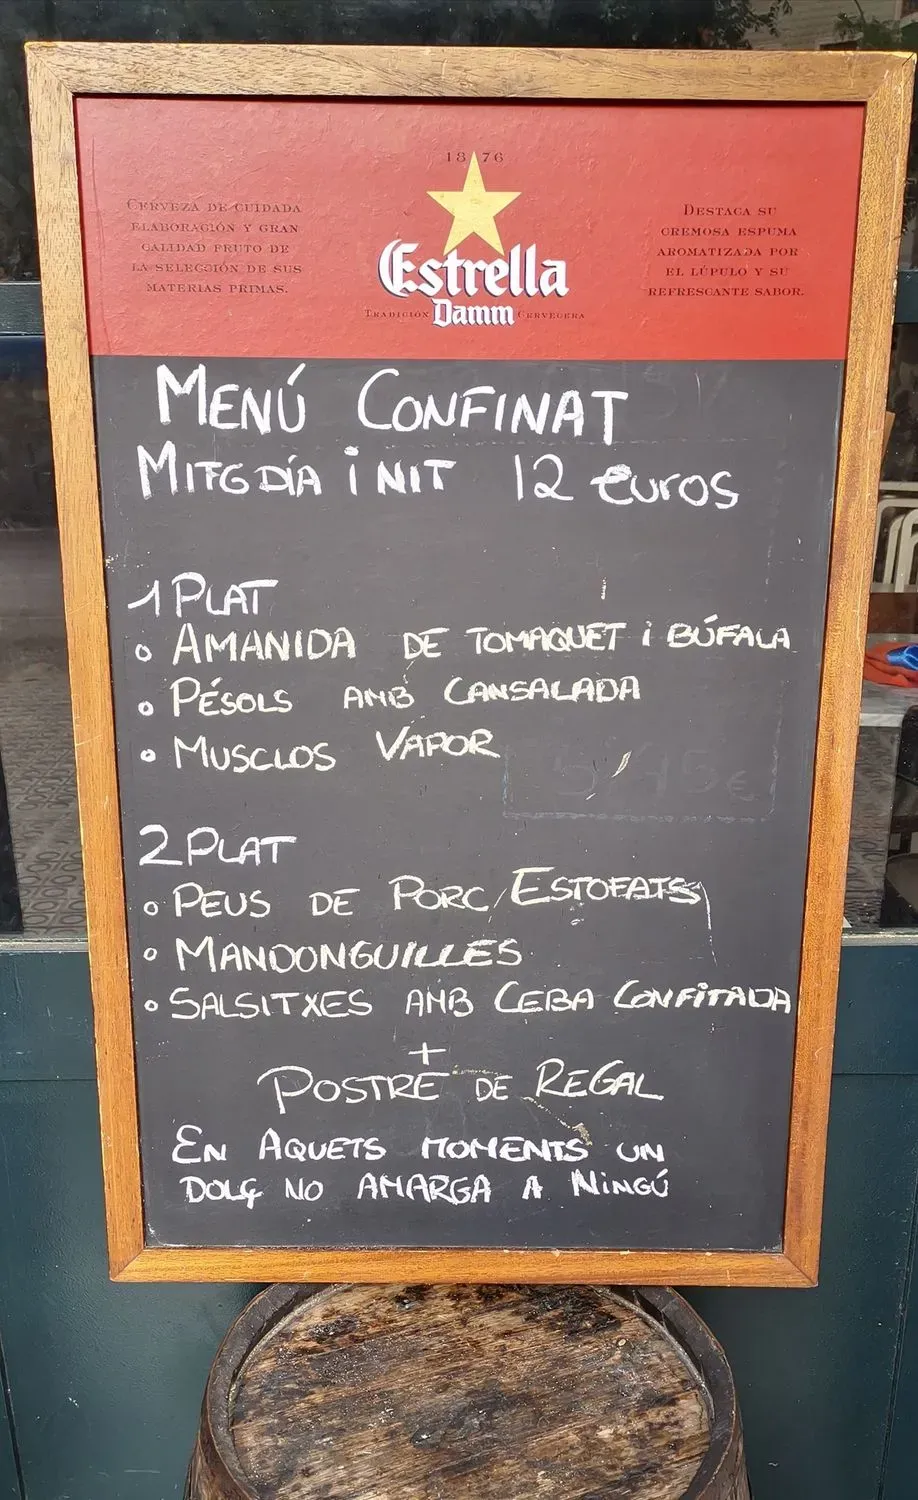 1876
CERVEZA DE CUIDADA
ELABORACIÓN Y GRAN
CALIDAD FRUTO DE
LA SELECCIÓN DE SUS
MATERIAS PRIMAS.
Estrella
TRADICIÓN Damm CERVECERA
DESTACA SU
CREMOSA ESPUMA
AROMATIZADA POR
EL LÚPULO Y SU
REFRESCANTE SABOR.
MENÚ CONFINAT
MITGDÍA i NIT 12 euros
1 PLAT
AMANIDA DE TOMAQUET i BÚFALA
PÉSOLS AMB CANSALADA
MUSCLOS VAPOR
2 PLAT
PEUS DE PORC ESTOFATS
MANDONGUILLES
SALSITXES AMB CEBA CONFITADA
+
POSTRE DE REGAL
EN AQUETS MOMENTS UN
DOLÇ NO AMARGA A NINGÚ